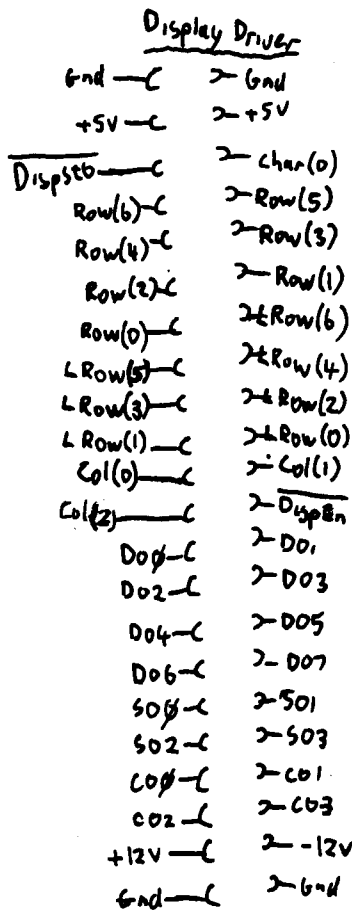 Display Driver
Gnd Gnd
+5V +5V
Dispstb Char(0)
Row(6) Row(5)
Row(4) Row(3)
Row(2) Row(1)
Row(0) LRow(6)
LRow(5) LRow(4)
LRow(3) LRow(2)
LRow(1) LRow(0)
Col(0) Col(1)
Col(2) DispEn
DO0 DO1
DO2 DO3
DO4 DO5
DO6 DO7
SO0 SO1
SO2 SO3
CO0 CO1
CO2 CO3
+12V -12V
Gnd Gnd